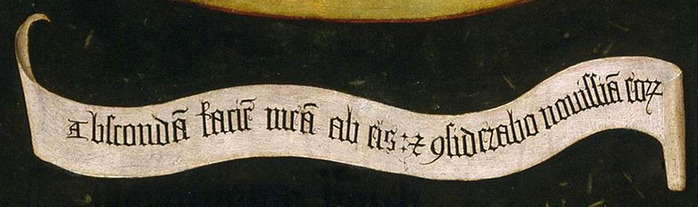 Abscondā faciē meā ab eis: ⁊ ꝯsiderabo nouissīa eoꝝ